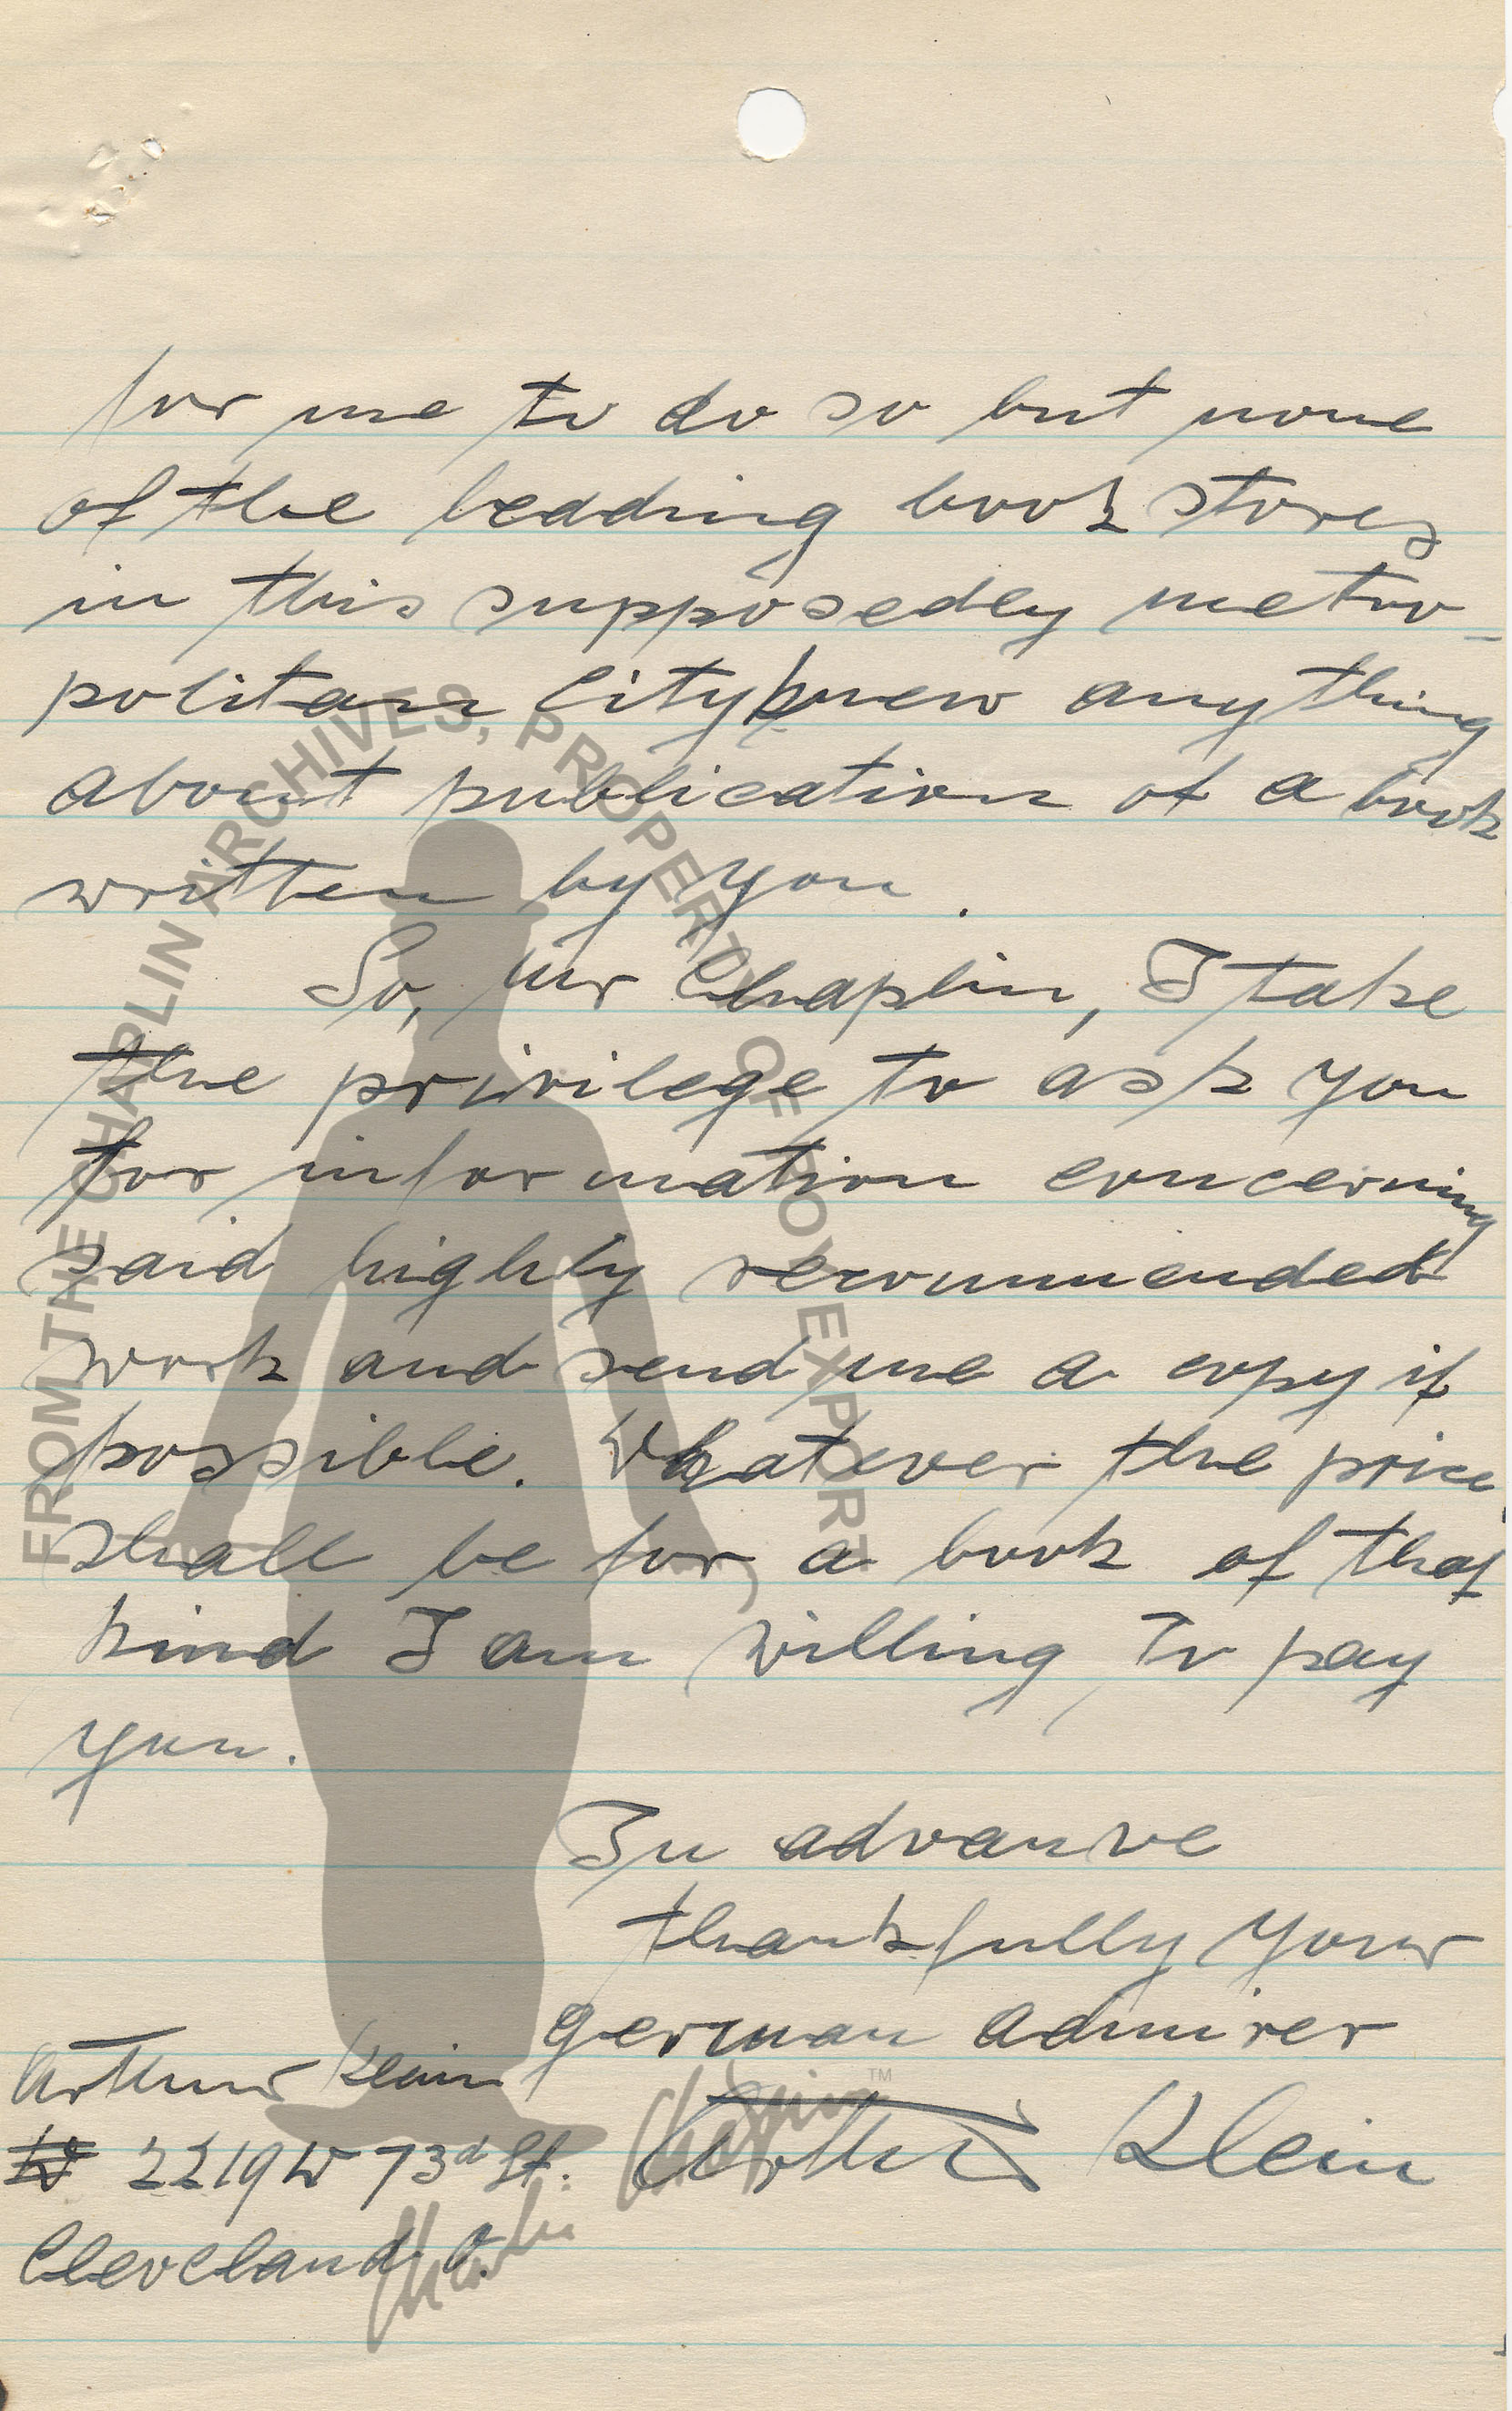 for me to do so but none
of the leadding book stores
in this supposedly metro-
politan City knew anything
about publication of a book
written by you.
So, Mr Chaplin, I take
the privilege to ask you
for information concerning
said highly recommended
work and send me a copy if
possible. Whatever the price
shall be for a book of that
kind I am willing to pay
you.
In advance
thankfully your
german admirer
Arthur Klein
Arthur Klein
2219 W 73d St.
Cleveland. O.
FROM THE CHAPLIN ARCHIVES, PROPERTY OF ROY EXPORT
Charlie Chaplin™